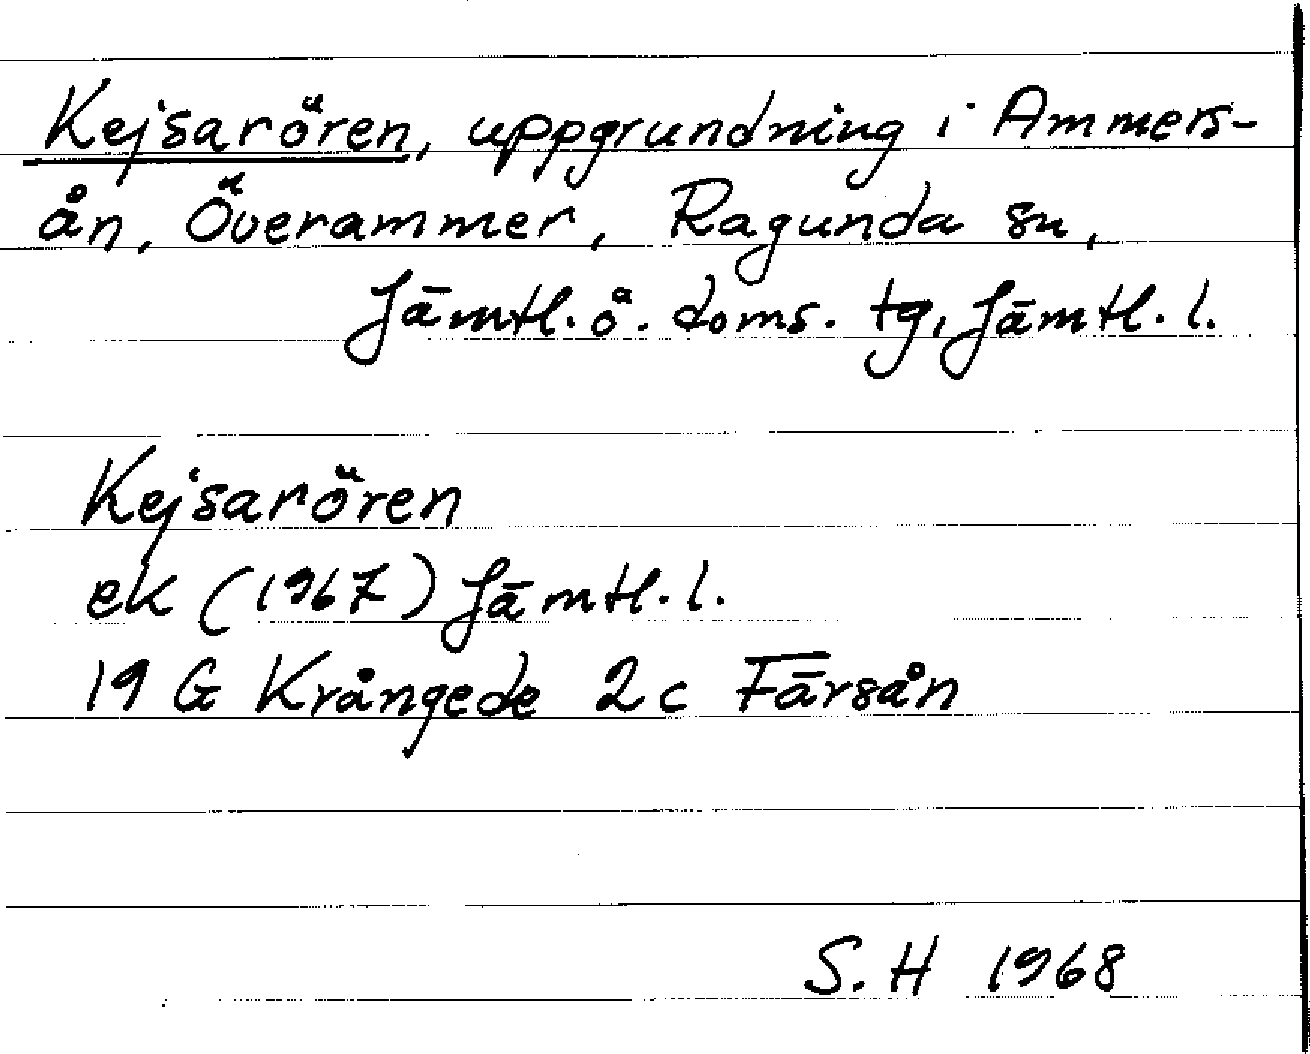 Kejsarören, uppgrundning i Ammers-
ån, Överammer, Ragunda sn,
Jämtl. ö. doms. tg, Jämtl. l.
Kejsarören
ek (1967) Jämtl. l.
19 G Krångede 2c Färsån
S. H 1968